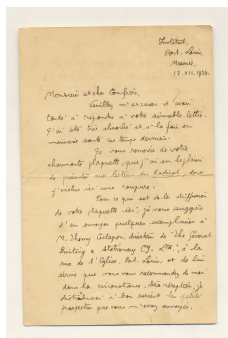 Institut,
Port-Louis,
Maurice,
17.VII.1924.
Monsieur et cher Confrère,
Veuillez m'excuser d'avoir
tardé à répondre à votre aimable lettre.
J'ai été très absorbé et, à la fois en
mauvaise santé ces temps derniers.
Je vous remercie de votre
charmante plaquette, que j'ai eu le plaisir
de présenter aux lecteurs du Radical, dont
j'inclus ici une coupure.
Pour ce qui est de la diffusion
de votre plaquette ici, je vous suggère
d'en envoyer quelques exemplaires à
M. Thomy directeur de "The General
Printing & Stationery Cy. Ltd.", à la
rue de l'Eglise, Port-Louis, et de lui
écrire que vous vous recommandez de moi
dans la circonstance; dès réception, je
distribuerai à bon escient les petits
prospectus que vous m'avez envoyés.